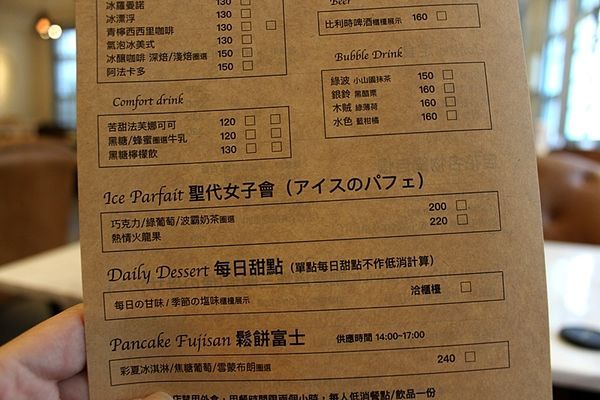 冰羅曼諾 130
冰漂浮 150
青檸西西里咖啡 150
氣泡冰美式 130
冰釀咖啡 深焙/淺焙圈選 150
阿法卡多 150
Beer
比利時啤酒櫃檯展示 160
Bubble Drink
綠波 小山園抹茶 150
銀鈴 黑醋栗 160
木賊 綠薄荷 160
水色 藍柑橘 160
Comfort drink
苦甜法芙娜可可 120
黑糖/蜂蜜圈選牛乳 120
黑糖檸檬飲 130
Ice Parfait 聖代女子會 (アイスのパフェ)
巧克力/綠葡萄/波霸奶茶圈選 200
熱情火龍果 220
Daily Dessert 每日甜點 (單點每日甜點不作低消計算)
每日の甘味/季節の塩味櫃檯展示 洽櫃檯
Pancake Fujisan 鬆餅富士 供應時間 14:00~17:00
彩夏冰淇淋/焦糖葡萄/雲蒙布朗圈選 240
用餐時間限兩個小時，每人低消餐點/飲品一份